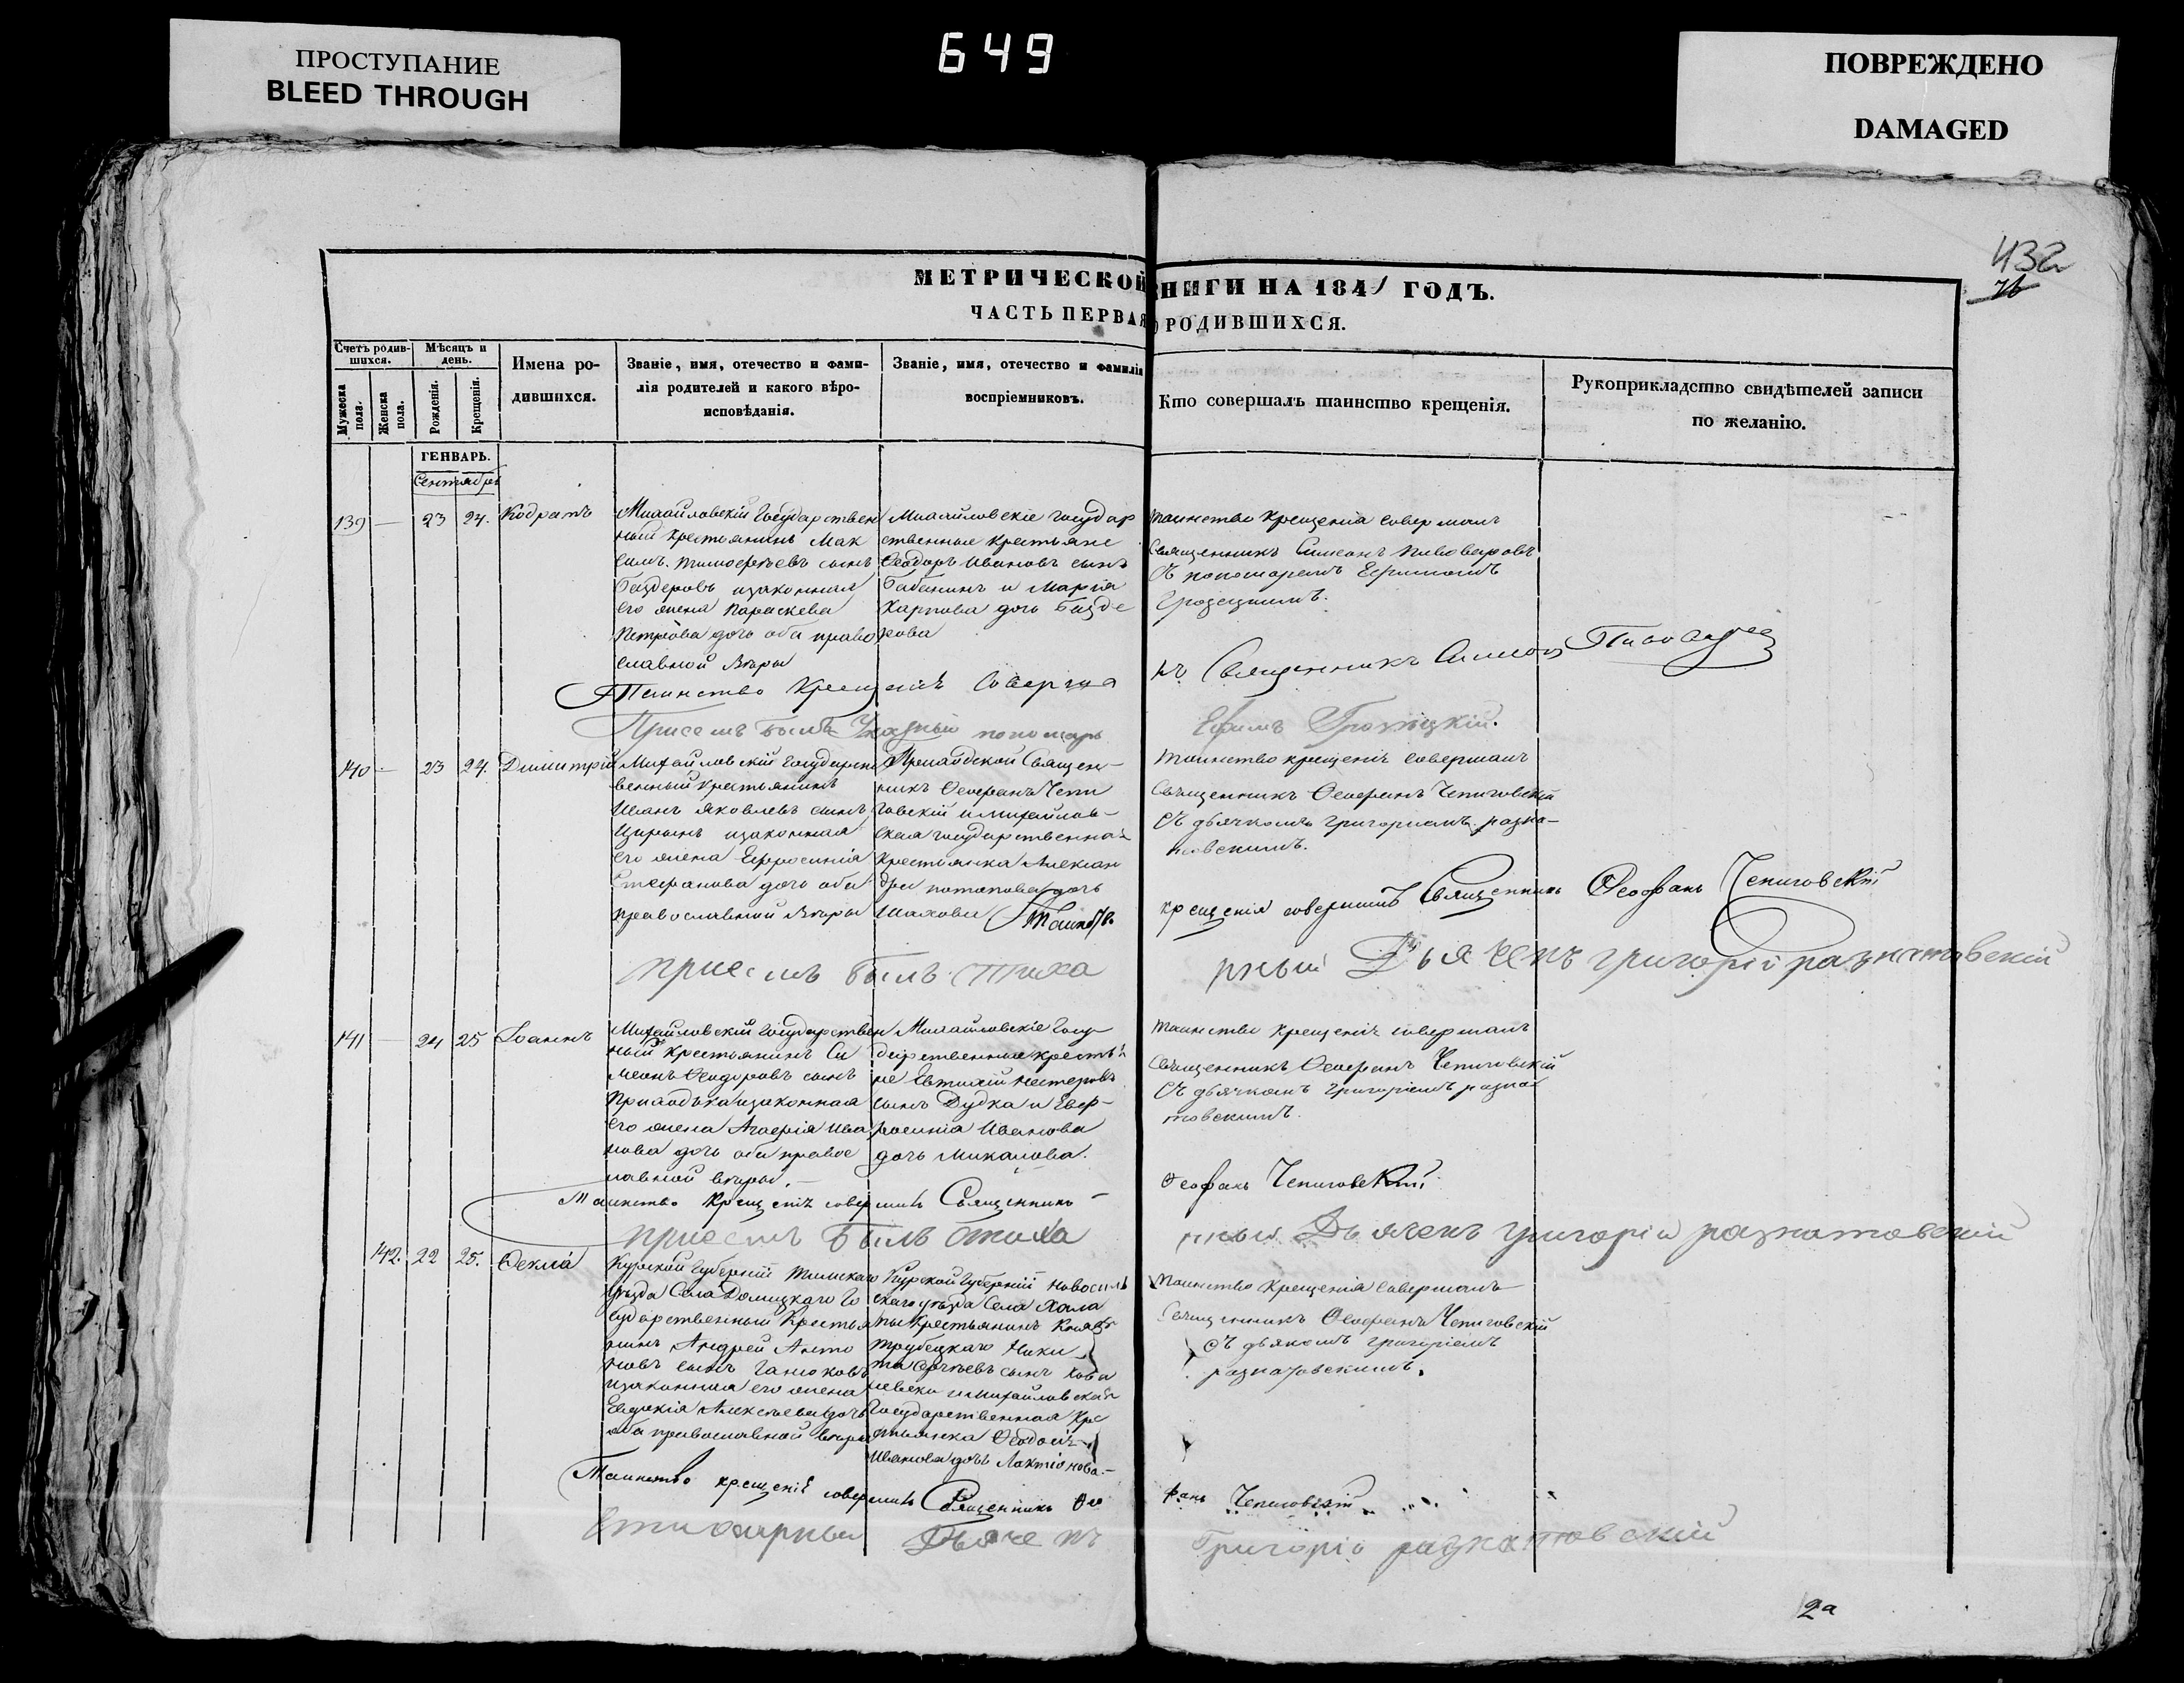 ПРОСТУПАНИЕ
BLEED THROUGH
649
ПОВРЕЖДЕНО
DAMAGED
432
МЕТРИЧЕСКОЙ КНИГИ НА 1841 ГОДЪ.
ЧАСТЬ ПЕРВАЯ О РОДИВШИХСЯ.
Счетъ родив-
шихся.
Мужеска
пола.
Женска
пола.
Мѣсяцъ и
день.
Рожденія.
Крещенія.
Имена ро-
дившихся.
Званіе, имя, отечество и фами-
лія родителей и какого вѣро-
исповѣданія.
Званіе, имя, отечество и фамилія
воспріемниковъ.
Кто совершалъ таинство крещенія.
Рукоприкладство свидѣтелей записи
по желанію.
ГЕНВАРЬ.
Сентябрь
139 — 23 24. Кодратъ
Михайловскій Государствен
ный крестьянинъ Мак
симъ Тимофеевъ сынъ
изаконная
его жена Параскева
Петрова дочь оба право
славной вѣры
Михайловскіе государ
ственные крестьяне
Ѳеодоръ Ивановъ сынъ
Бабанинъ и Марія
Карпова дочь
Таинство крещенія совершалъ
Священникъ Симеонъ Пивоваровъ
съ пономаремъ Ефимомъ
Грозецкимъ.
Таинство Крещенія Соверша
лъ Священникъ Симеонъ
Присемъ былъ Указный пономарь
Ефимъ
140 — 23 24. Димитрій
Михайловскій Государст
венный крестьянинъ
Иванъ Яковлевъ сынъ
Цыринъ изаконная
его жена Ефросинія
Стефанова дочь оба
православной вѣры
Священ-
никъ Ѳеофанъ Чепи
говскій и михайлов-
ская государственная
крестьянка Алексан
дра потапова дочь
Шахова
Таинство крещенія совершалъ
Священникъ Ѳеофанъ Чепиговскій
съ дьячкомъ григоріемъ разна-
товскимъ.
крещенія совершилъ Священникъ Ѳеофанъ Чепиговскій
присемъ былъ стиха
рный Дьячекъ григорій разнатовскій
141 — 24 25 Іоаннъ
Михайловскій Государствен
ный крестьянинъ Си
меонъ Ѳеодоровъ сынъ
Приходька изаконная
его жена Агафія Ива
нова дочь оба правос
лавной вѣры.
Михайловскіе Госу
дарственные крестья
не Евтихій Нестеровъ
сынъ Дудка и Евф-
росинія Иванова
дочь Михалова.
Таинство крещенія совершалъ
Священникъ Ѳеофанъ Чепиговскій
съ дьячкомъ григоріемъ разна
товскимъ.
Таинство Крещенія совершилъ Священникъ
Ѳеофанъ Чепиговскій
присемъ былъ стиха
рный Дьячекъ григорій разнатовскій
142. 22 25. Ѳекла
Курской Губерніи Тимскаго
уѣзда Села Долицкаго Го
сударственный Крестья
нинъ Андрей Анто
новъ сынъ Ганюковъ
изаконная его жена
Евдокія Алексѣева дочь
оба православной вѣры
Курской Губерніи Новосиль
скаго уѣзда Села
крестьянинъ Князя
трубецкаго Ники
та Сергѣевъ сынъ
и михайловская
Государственная Кре
стьянка Ѳеодосія
Иванова дочь Лактіонова.
Таинство Крещенія Совершалъ
Священникъ Ѳеофанъ Чепиговскій
съ дьякомъ григоріемъ
разнатовскимъ.
Таинство крещеніе совершилъ Священникъ Ѳео
фанъ Чепиговскій
Стихарный Дьячекъ
Григорій разнатовскій
2а